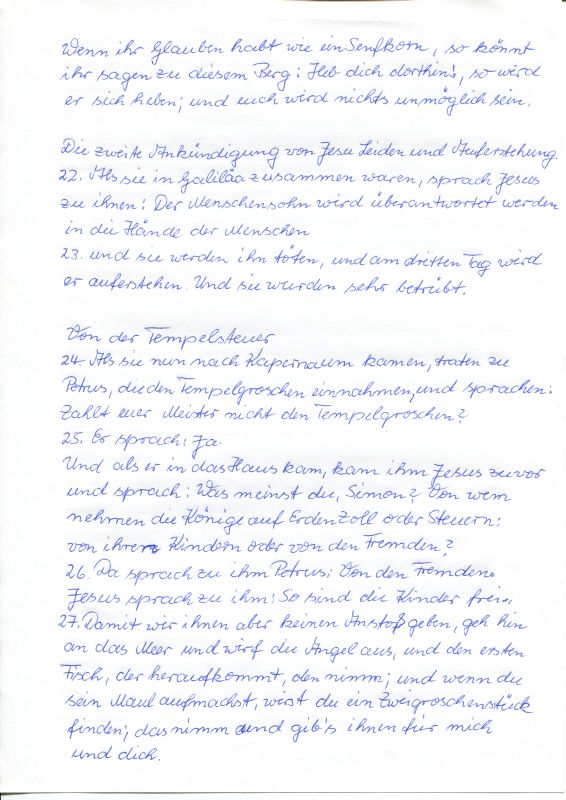 Wenn ihr Glauben habt wie ein Senfkorn, so könnt
ihr sagen zu diesem Berg: Heb dich dorthin!, so wird
er sich heben; und euch wird nichts unmöglich sein.
Die zweite Ankündigung von Jesu Leiden und Auferstehung.
22. Als sie in Galiläa zusammen waren, sprach Jesus
zu ihnen: Der Menschensohn wird überantwortet werden
in die Hände der Menschen
23. und sie werden ihn töten, und am dritten Tag wird
er auferstehen. Und sie wurden sehr betrübt.
Von der Tempelsteuer
24. Als sie nun nach Kapernaum kamen, traten zu
Petrus, die den Tempelgroschen einnahmen, und sprachen:
Zahlt euer Meister nicht den Tempelgroschen?
25. Er sprach: Ja.
Und als er in das Haus kam, kam ihm Jesus zuvor
und sprach: Was meinst du, Simon? Von wem
nehmen die Könige auf Erden Zoll oder Steuern:
von ihren Kindern oder von den Fremden?
26. Da sprach zu ihm Petrus: Von den Fremden.
Jesus sprach zu ihm: So sind die Kinder frei.
27. Damit wir ihnen aber keinen Anstoß geben, geh hin
an das Meer und wirf die Angel aus, und den ersten
Fisch, der heraufkommt, den nimm; und wenn du
sein Maul aufmachst, wirst du ein Zweigroschenstück
finden; das nimm und gib's ihnen für mich
und dich.